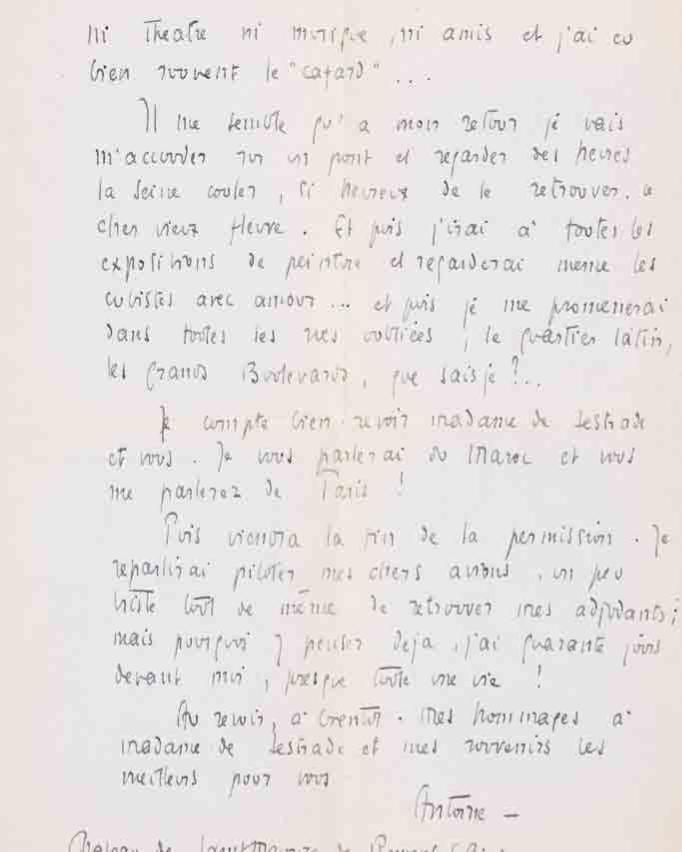 ni theatre ni musique, ni amis et j'ai eu
bien souvent le "cafard" ...
Il me semble qu'a mon retour je vais
m'accouder sur un pont et regarder des heures
la Seine couler, si heureux de le retrouver. ce
cher vieux fleuve. Et puis j'irai à toutes les
expositions de peinture et regarderai meme les
cubistes avec amour... et puis je me promenerai
dans toutes les rues oubliées, le quartier latin,
les Grands Boulevards, que sais je?..
Je compte bien revoir madame de Lestrade
et vous. Je vous parlerai du Maroc et vous
me parlerez de Paris!
Puis viendra la fin de la permission. Je
repartirai piloter mes chers avions, un peu
triste tout de même de retrouver mes adjudants;
mais pourquoi y penser deja, j'ai quarante jours
devant moi, presque toute une vie!
Au revoir, a bientot. Mes hommages à
madame de Lestrade et mes souvenirs les
meilleurs pour vous
Antoine —
Chateau de Saint Maurice de